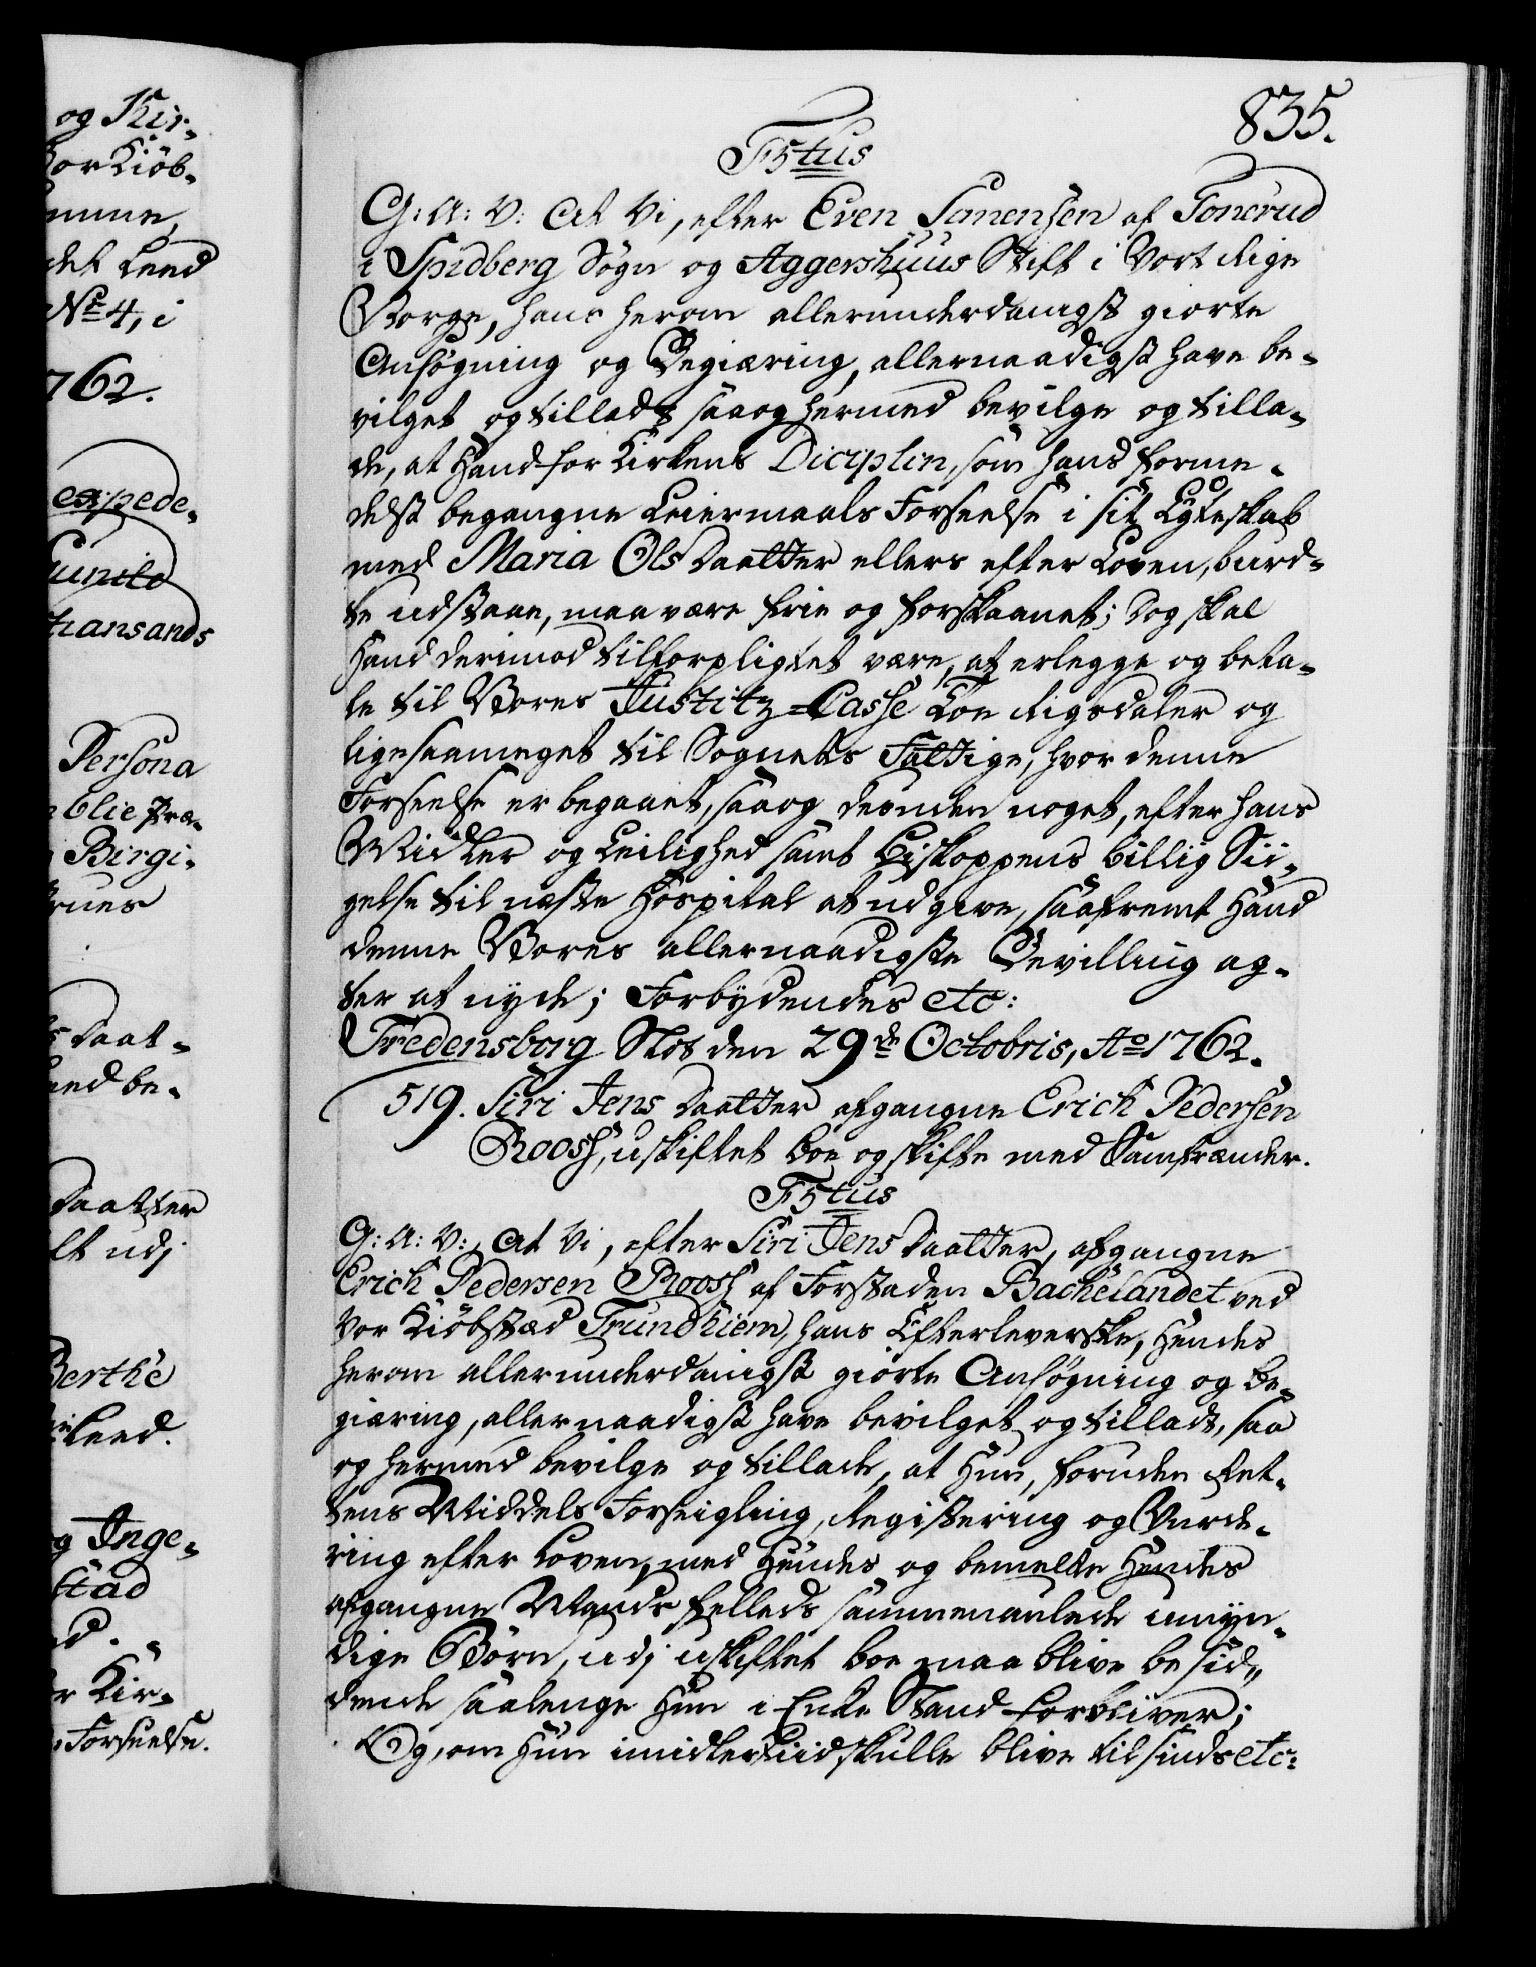 og Kir-
for Kiöb-
det Leed
No 4, i
1762.
expede-
Gunild
tiansands
Persona
blie præ-
Birgi-
Daat-
med be-
Daatter
Berthe
Leed.
og Inge-
stad
Kir-
Forseelse.
835.
Fr 5tus
G: A: V: At Vi, efter Even Simensen af Tonerud
i Spidberg Sogn og Aggershuus Stift i Vort Rige
Norge, hans herom allerunderdanigst giorte
Ansøgning og Begiæring, allernaadigst have be-
vilget og tilladt, saa og hermed bevilge og tilla-
de, at Hand for Kirkens Diciplin, som hand forme-
delst begangne Leiermaals Forseelse i sit Egteskab
med Maria Ols Daatter ellers efter Loven, burd-
te udstaae, maa være frie og forskaanet; Dog skal
Hand derimod tilforpligtet være, at erlegge og beta-
le til Vores Justitz-Casse Toe Rigsdaler og
ligesaameget til Sognets Fattige, hvor denne
Forseelse er begaaet, saa og desuden noget, efter hans
Midler og Leilighed samt Biskoppens billig Sii-
gelse til næste Hospital at udgive, saafremt Hand
denne Vores allernaadigste Bevilling ag-
ter at nyde; Forbydendes etc:
Fredensborg Slot den 29de Octobris, Ao 1762.
519. Siri Jens Daatter afgangne Erich Pedersen
Rooss, uskiftet boe og skifte med Samfrænder.
Fr 5tus
G: A: V: At Vi, efter Siri Jens Daatter, afgangne
Erich Pedersen Rooss af Forstaden Bachelandet ved
Vor Kiøbstæd Trundhiem, hans Efterleverske, Hendes
herom allerunderdanigst giorte Ansøgning og Be-
giæring, allernaadigst have bevilget og tilladt, saa
og hermed bevilge og tillade, at Hun, foruden Ret-
tens Middels Forseigling, Registering og Vurde-
ring efter Loven, med Hendes og bemelte Hendes
afgangne Mands fælleds sammenavlede umyn-
dige Børn, udj uskiftet boe maa blive besid-
dende saalenge Hun i Enke Stand forbliver;
Og, om Hun imidlertiid skulle blive til sinds etc: